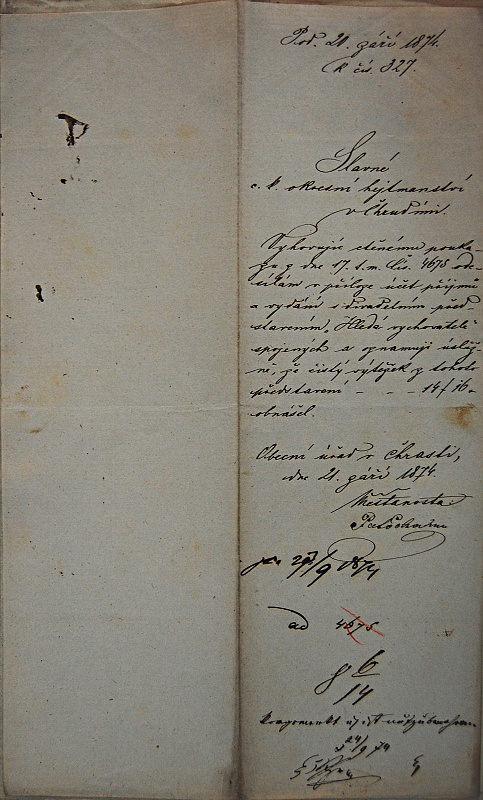 Pod. 21. září 1874.
k čís. 327.
Slavné
c. k. okresní hejtmanství
v Chrudimi.
Vyhovujíc ctěnému pouka-
zu z dne 17. t. m. čís. 4675 ode-
sílám v příloze účet příjmů
a vydání s divadelním před-
stavením „Hledá vychovatele
spojených a oznamuji úsluž-
ně, že čistý výtěžek z tohoto
představení - - - 14/16 -
obnášel.
Obecní úřad v Chrasti,
dne 21. září 1874.
Měšťanosta:
27/9 1874
ad 4675
g 6/14
24/9 74